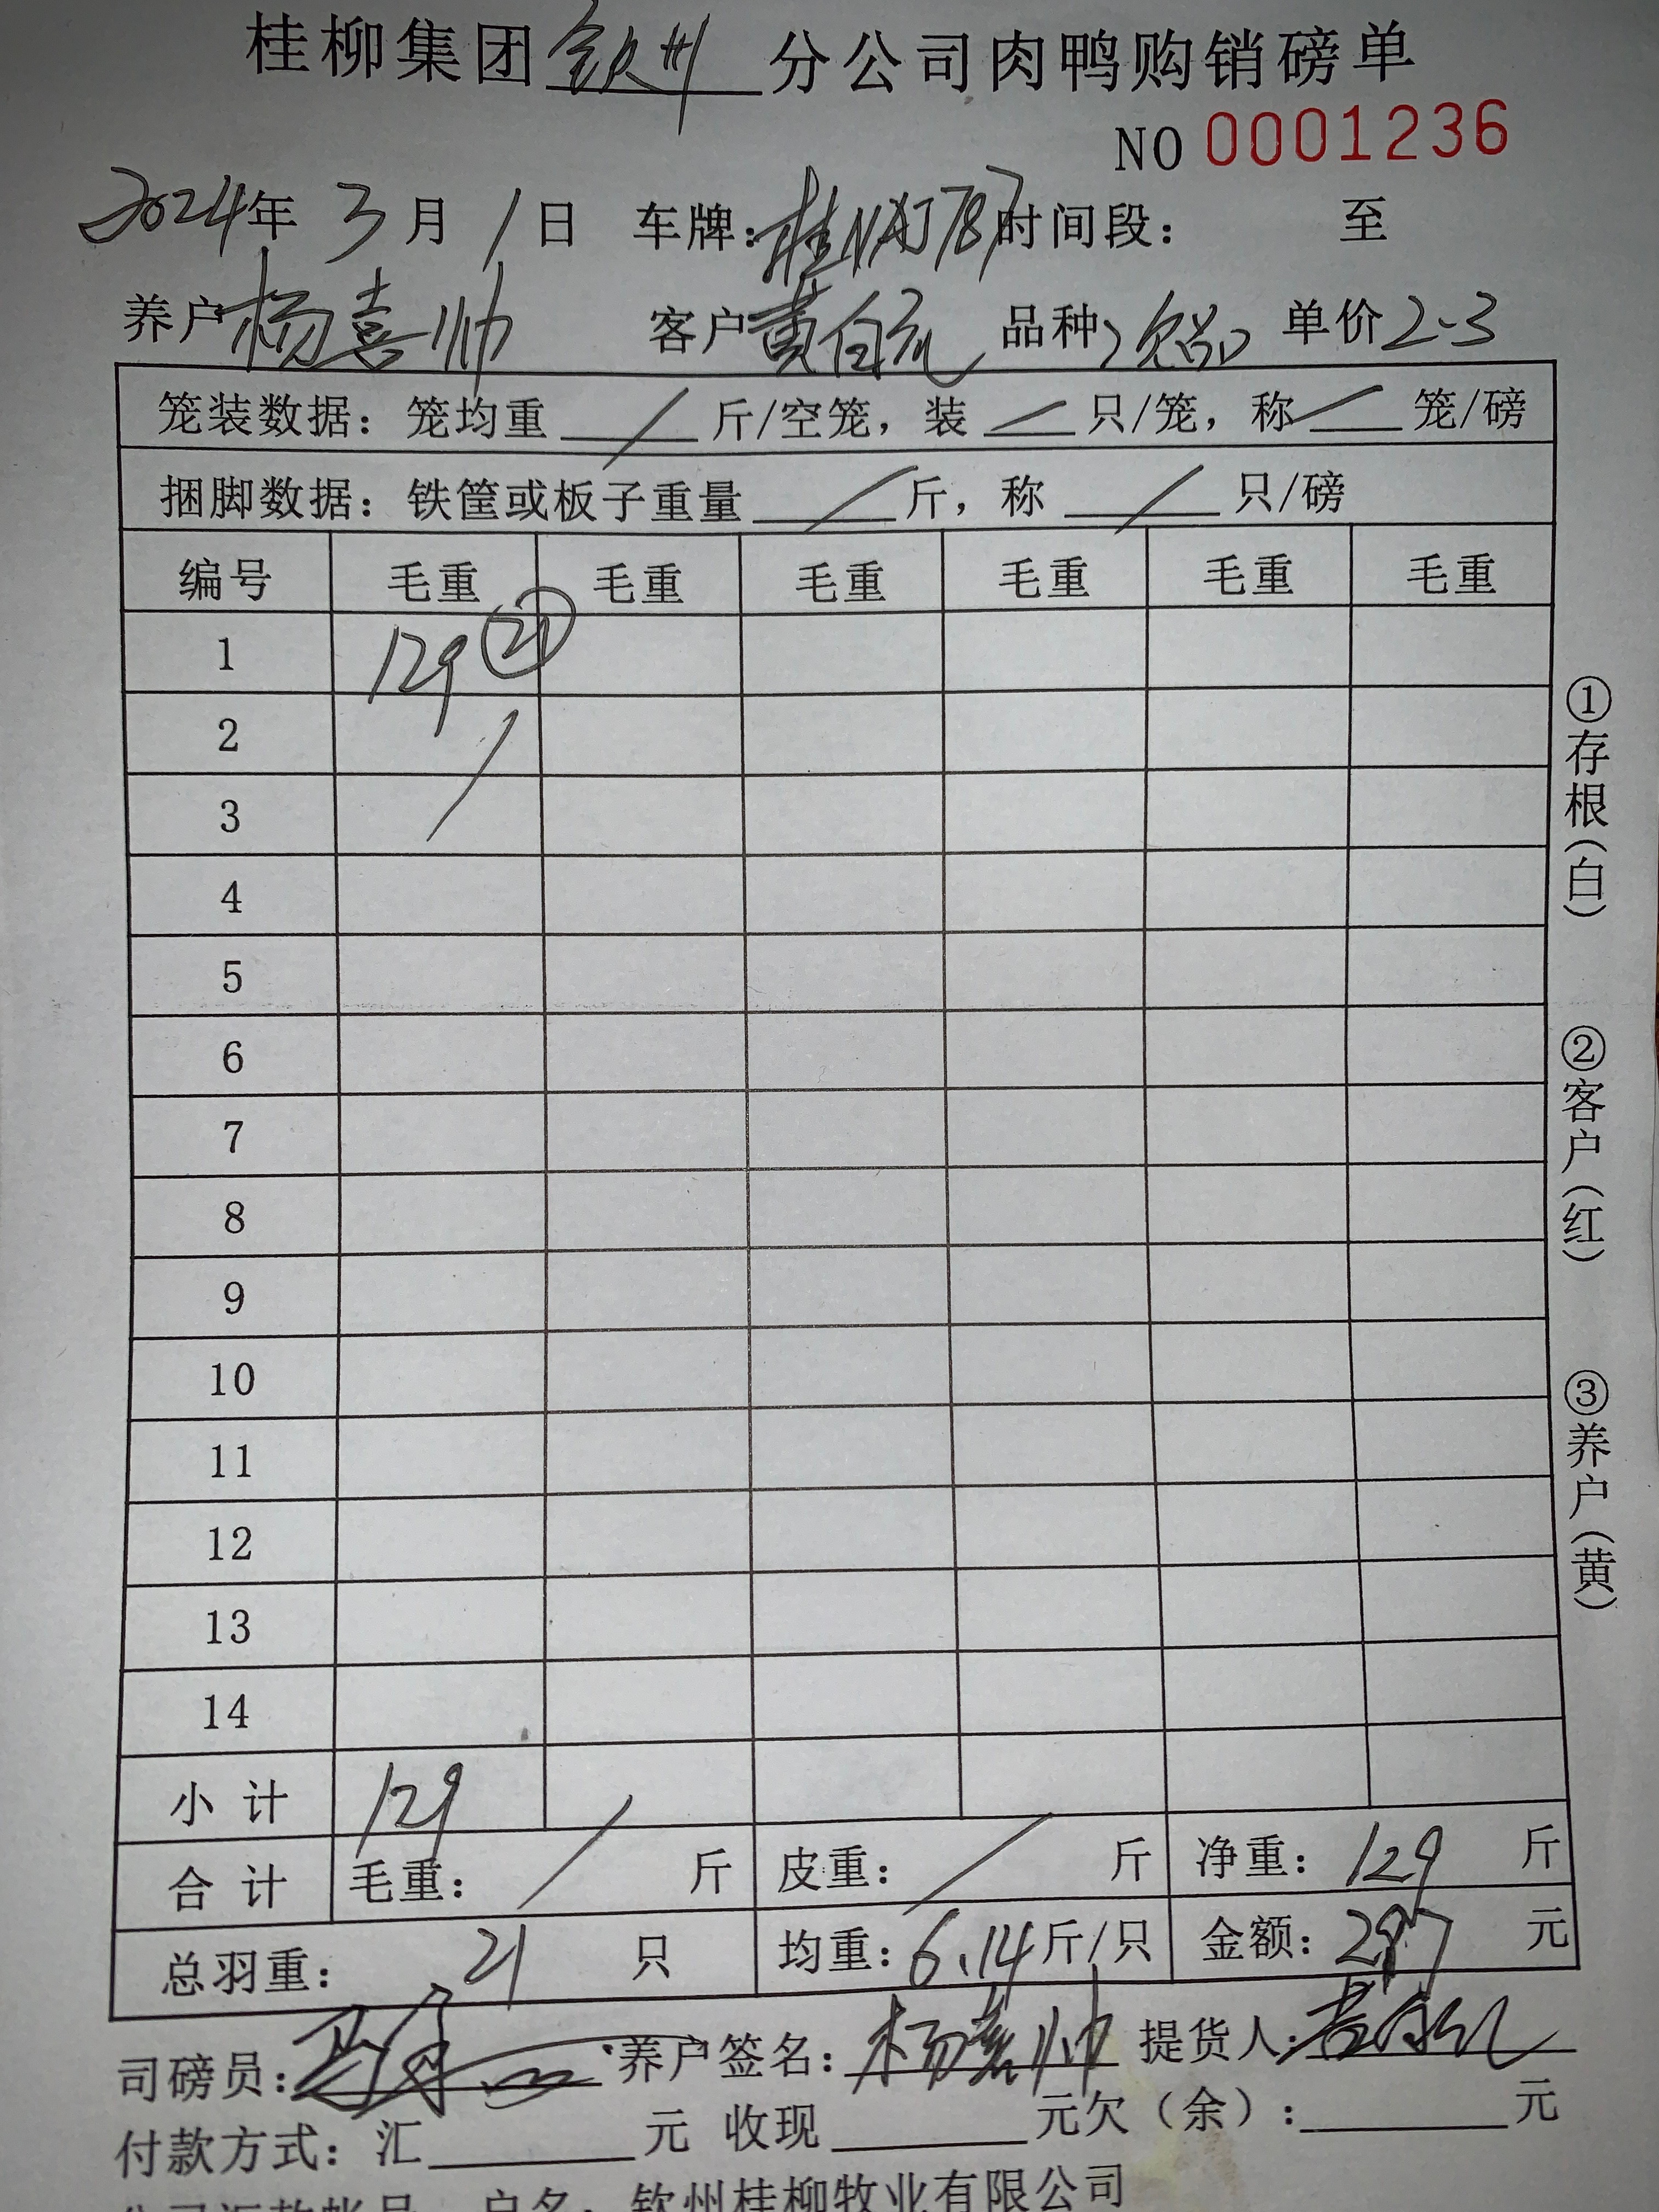 桂柳集团钦州分公司肉鸭购销磅单
NO 0001236
2024年 3月 1日 车牌:桂NAJ787 时间段: 至
养户 杨喜帅 客户 黄白 品种 次品 单价 2.3
笼装数据:笼均重 / 斤/空笼,装 / 只/笼,称 / 笼/磅
捆脚数据:铁筐或板子重量 / 斤,称 / 只/磅
编号 毛重 毛重 毛重 毛重 毛重 毛重
1 129 ㉑
2 /
3
4
5
6
7
8
9
10
11
12
13
14
小计 129
合计 毛重: / 斤 皮重: / 斤 净重: 129 斤
总羽重: 21 只 均重: 6.14 斤/只 金额: 297 元
司磅员: 养户签名: 杨喜帅 提货人:
付款方式:汇 元 收现 元欠(余): 元
公司汇款帐号 户名:钦州桂柳牧业有限公司
①存根(白)
②客户(红)
③养户(黄)